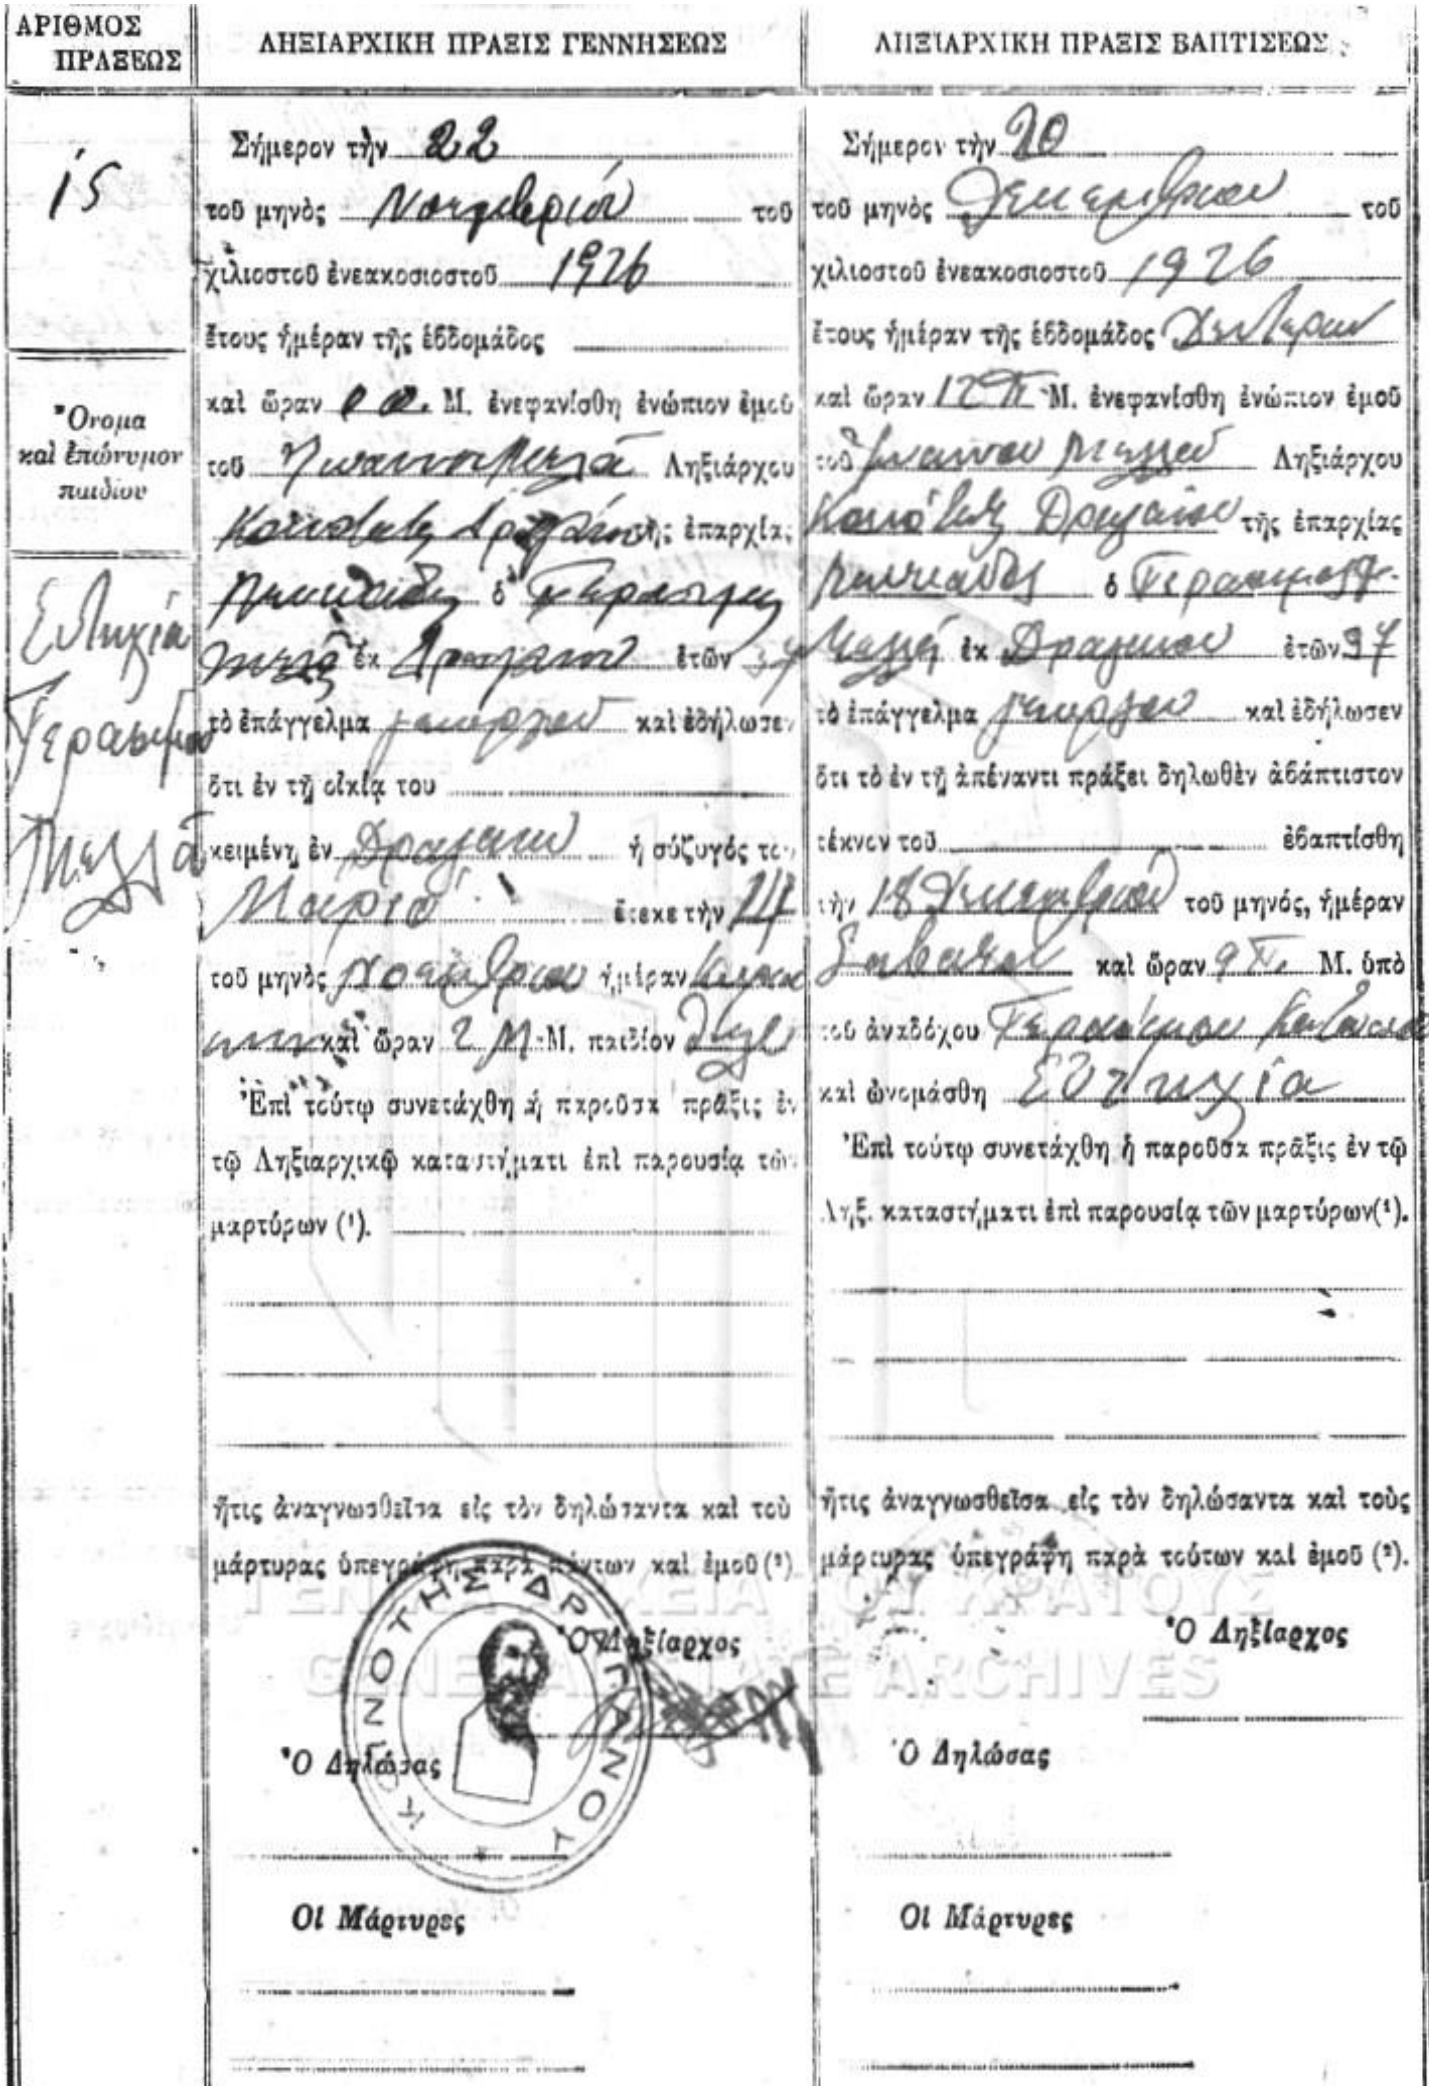 ΑΡΙΘΜΟΣ
ΠΡΑΞΕΩΣ
ιϛ
Ὄνομα
καὶ ἐπώνυμον
παιδίου
Ευτυχία
Γερασίμου
Μελά
ΛΗΞΙΑΡΧΙΚΗ ΠΡΑΞΙΣ ΓΕΝΝΗΣΕΩΣ
Σήμερον τὴν 22
τοῦ μηνὸς Νοεμβρίου τοῦ
χιλιοστοῦ ἐνεακοσιοστοῦ 1926
ἔτους ἡμέραν τῆς ἑβδομάδος
καὶ ὥραν Μ. ἐνεφανίσθη ἐνώπιον ἐμοῦ
τοῦ Ιωάννου Μελά Ληξιάρχου
Κοινότητος Δραγάνου τῆς ἐπαρχίας
ὁ Γεράσιμος
ἐκ Δραγάνου ἐτῶν 37
τὸ ἐπάγγελμα γεωργού καὶ ἐδήλωσεν
ὅτι ἐν τῇ οἰκίᾳ του
κειμένῃ ἐν Δραγάνου ἡ σύζυγός του
Μαρία ἔτεκε τὴν 14
τοῦ μηνὸς Νοεμβρίου ἡμέραν
καὶ ὥραν 2 Μ. παιδίον θήλυ
Ἐπὶ τούτῳ συνετάχθη ἡ παροῦσα πρᾶξις ἐν
τῷ Ληξιαρχικῷ καταστήματι ἐπὶ παρουσίᾳ τῶν
μαρτύρων (¹).
ἥτις ἀναγνωσθεῖσα εἰς τὸν δηλώσαντα καὶ τοὺ
μάρτυρας ὑπεγράφη παρὰ πάντων καὶ ἐμοῦ (²)
Ὁ Ληξίαρχος
ΚΟΙΝΟΤΗΣ ΔΡΑΓΑΝΟΥ
Ὁ Δηλώσας
Οἱ Μάρτυρες
ΛΗΞΙΑΡΧΙΚΗ ΠΡΑΞΙΣ ΒΑΠΤΙΣΕΩΣ
Σήμερον τὴν 20
τοῦ μηνὸς Δεκεμβρίου τοῦ
χιλιοστοῦ ἐνεακοσιοστοῦ 1926
ἔτους ἡμέραν τῆς ἑβδομάδος Δευτέραν
καὶ ὥραν 12 π Μ. ἐνεφανίσθη ἐνώπιον ἐμοῦ
τοῦ Ιωάννου Μελά Ληξιάρχου
Κοινότητος Δραγάνου τῆς ἐπαρχίας
Λευκάδος ὁ Γεράσιμος
Μελάς ἐκ Δραγάνου ἐτῶν 37
τὸ ἐπάγγελμα γεωργού καὶ ἐδήλωσεν
ὅτι τὸ ἐν τῇ ἀπέναντι πράξει δηλωθὲν ἀβάπτιστον
τέκνον τοῦ ἐβαπτίσθη
τὴν 18 Δεκεμβρίου τοῦ μηνός, ἡμέραν
Σαβάτον καὶ ὥραν 9 π. Μ. ὑπὸ
τοῦ ἀναδόχου Γερασίμου
καὶ ὠνομάσθη Ευτυχία
Ἐπὶ τούτῳ συνετάχθη ἡ παροῦσα πρᾶξις ἐν τῷ
Ληξ. καταστήματι ἐπὶ παρουσίᾳ τῶν μαρτύρων(¹).
ἥτις ἀναγνωσθεῖσα εἰς τὸν δηλώσαντα καὶ τοὺς
μάρτυρας ὑπεγράφη παρὰ τούτων καὶ ἐμοῦ (²).
Ὁ Ληξίαρχος
Ὁ Δηλώσας
Οἱ Μάρτυρες
ΓΕΝΙΚΑ ΑΡΧΕΙΑ ΤΟΥ ΚΡΑΤΟΥΣ
GENERAL STATE ARCHIVES